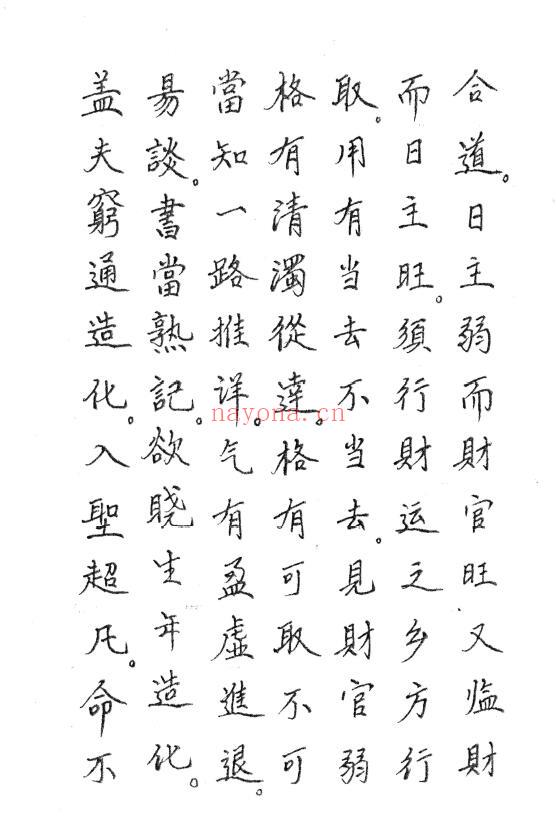 合道。日主弱而財官旺又临財
而日主旺。須行財运之乡方行
取。用有当去不当去。見財官弱
格有清濁從違。格有可取不可
當知一路推详。气有盈虛進退。
昜談。書當熟記。欲曉生年造化。
盖夫窮通造化。入聖超凡。命不
nayona.cn